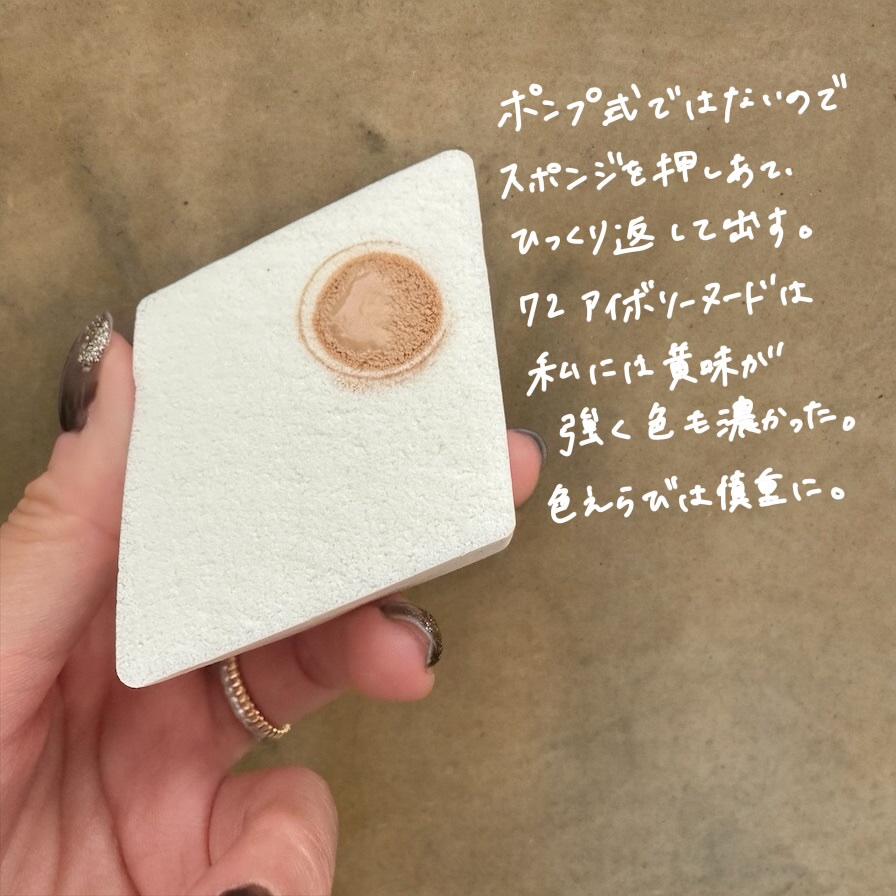 ポンプ式ではないので
スポンジを押しあて、
ひっくり返して出す。
72 アイボリーヌードは
私には黄味が
強く色も濃かった。
色えらびは慎重に。